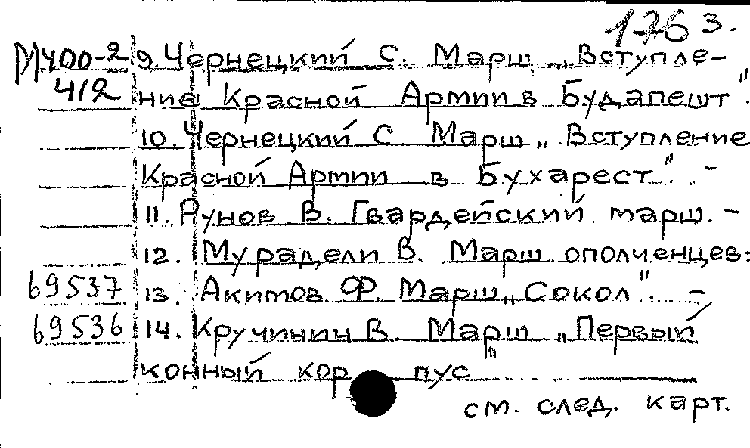 1763.
М400-2 9. Чернецкий С. Марш „Вступле-
412 ние Красной Армии в Будапешт".
10. Чернецкий С. Марш „Вступление
Красной Армии в Бухарест". -
11. Рунов В. Гвардейский марш. -
12. Мурадели В. Марш ополченцев.
69537 13. Акимов Ф. Марш „Сокол". -
69536 14. Кручинин В. Марш „Первый
конный корпус"
см. след. карт.